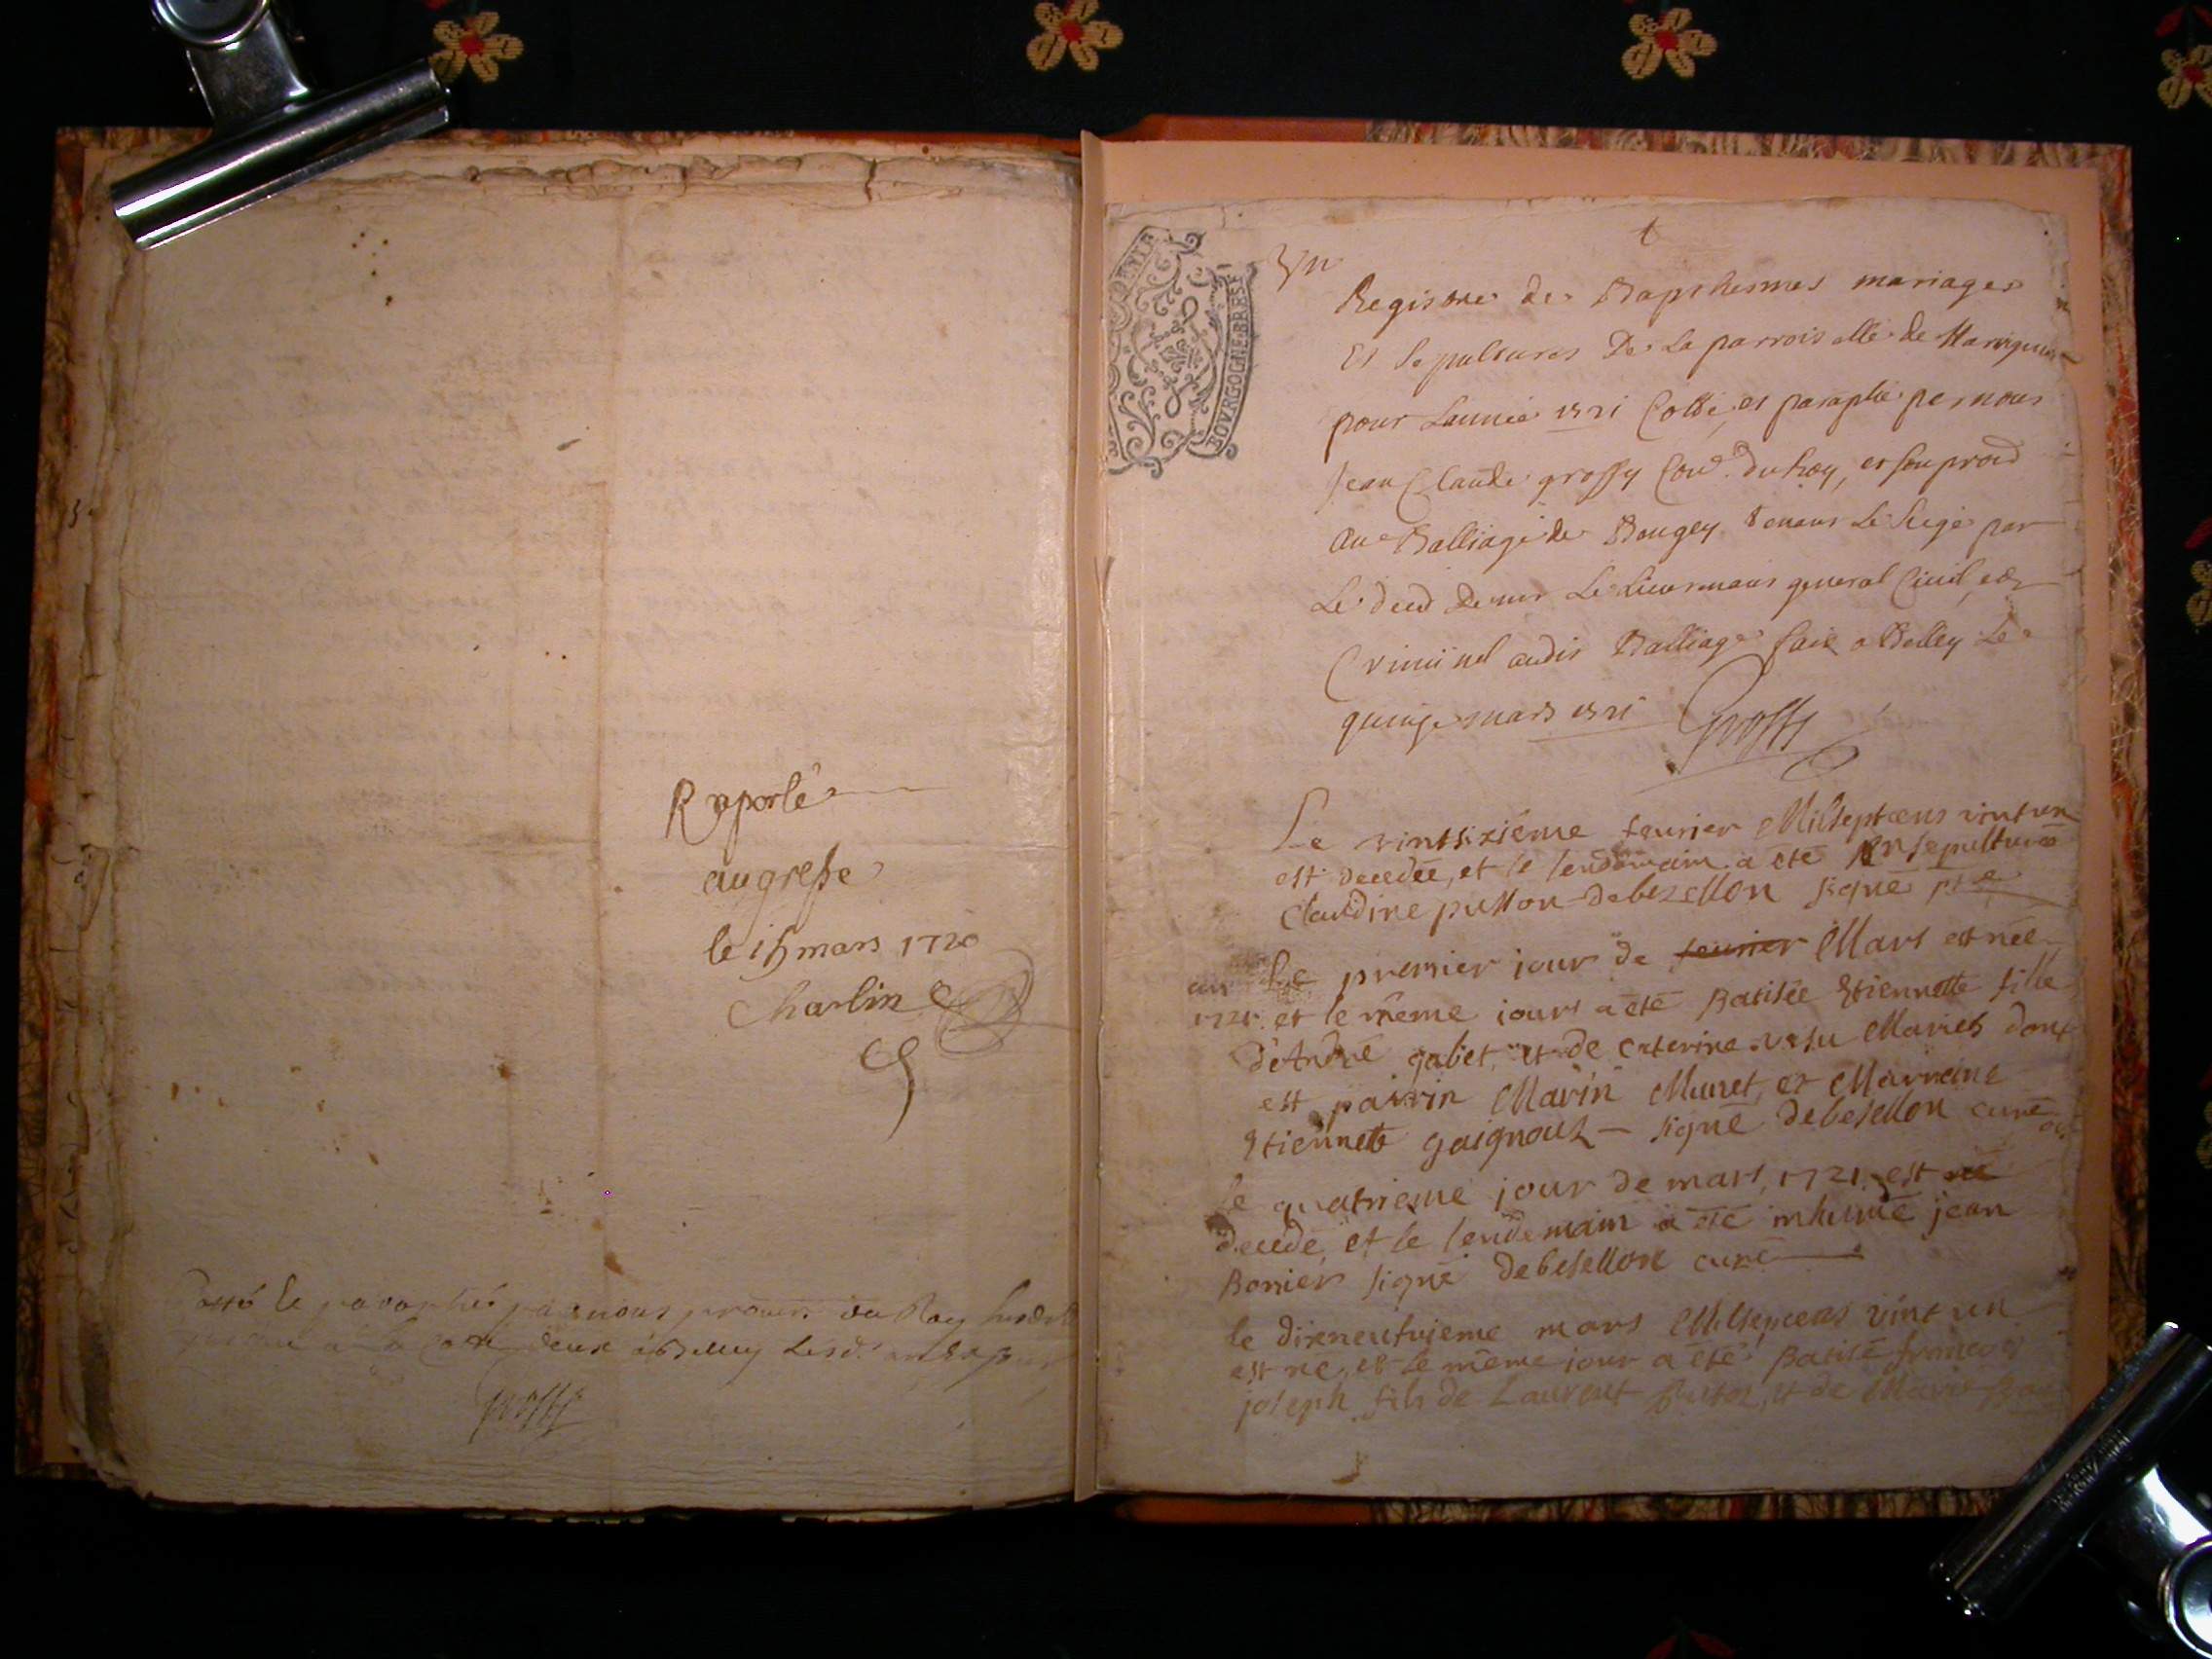 Raporté
au greffe
le 15 mars 1720
Charlin
Cotté et paraphé par nous procur. du Roy
deux à Belley
Grossy
BOVRGOGNE BRESSE
Un
Registre des Bapthesmes mariages
Et Sepultures De La parroisse de Marignieu
pour Lannée 1721 Cotté, et paraphé par nous
Jean Claude grossy Con.r du Roy, et son procu.
Au Balliage de Bougey tenant Le Siege par
Le deced de mr Le Lieutenant general Civil, et
Criminel audit Balliage fait a Belley Le
quinze mars 1721 Grossy
Le vintsixiéme feurier Milseptcens vint un
est decedée, et le lendemain a été Ensepulturée
Claudine pullon debesellon signé
an Le premier jour de feurier Mars est née
1721. et le même jour a été Batisée Etiennette fille
d'André gabet, et de Caterine Mariés dont
est pairin Marin Munet, et Marreine
Etiennette gaignoux signé debesellon curé
Le quatrieme jour de mars 1721 est né
decedé, et le lendemain a été inhumé jean
Bonier signé debesellon curé
le dixneufvieme mars Milseptcens vint un
est né, et le même jour a été Batisé françois
joseph fils de Laurent et de Marie